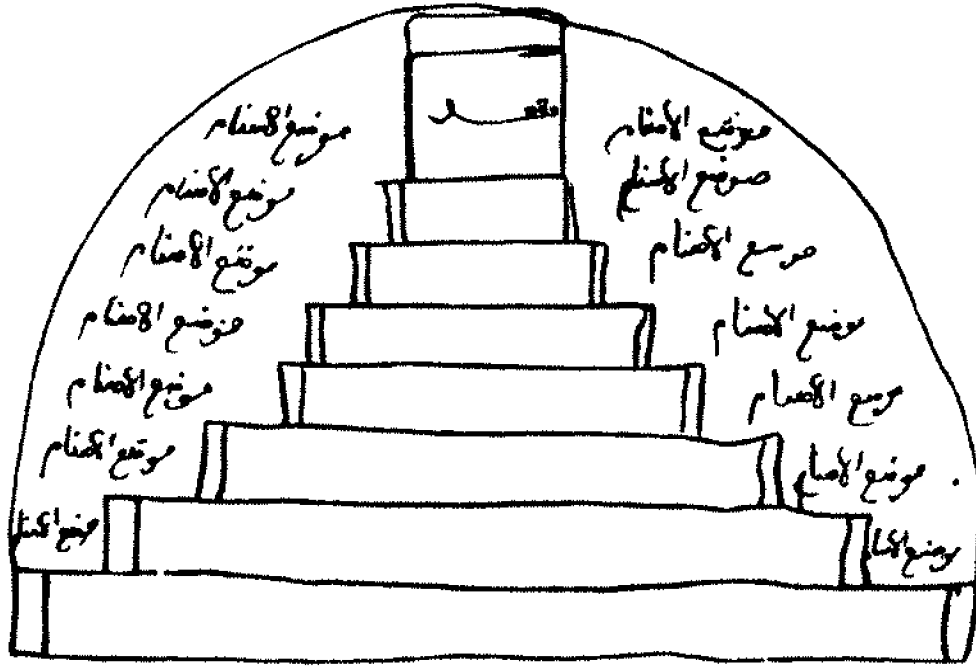 موضع الاصنام
موضع الاصنام
موضع الاصنام
موضع الاصنام
موضع الاصنام
موضع الاصنام
موضع الاصنام
موضع الاصنام
موضع الاصنام
موضع الاصنام
موضع الاصنام
موضع الاصنام
موضع
موضع